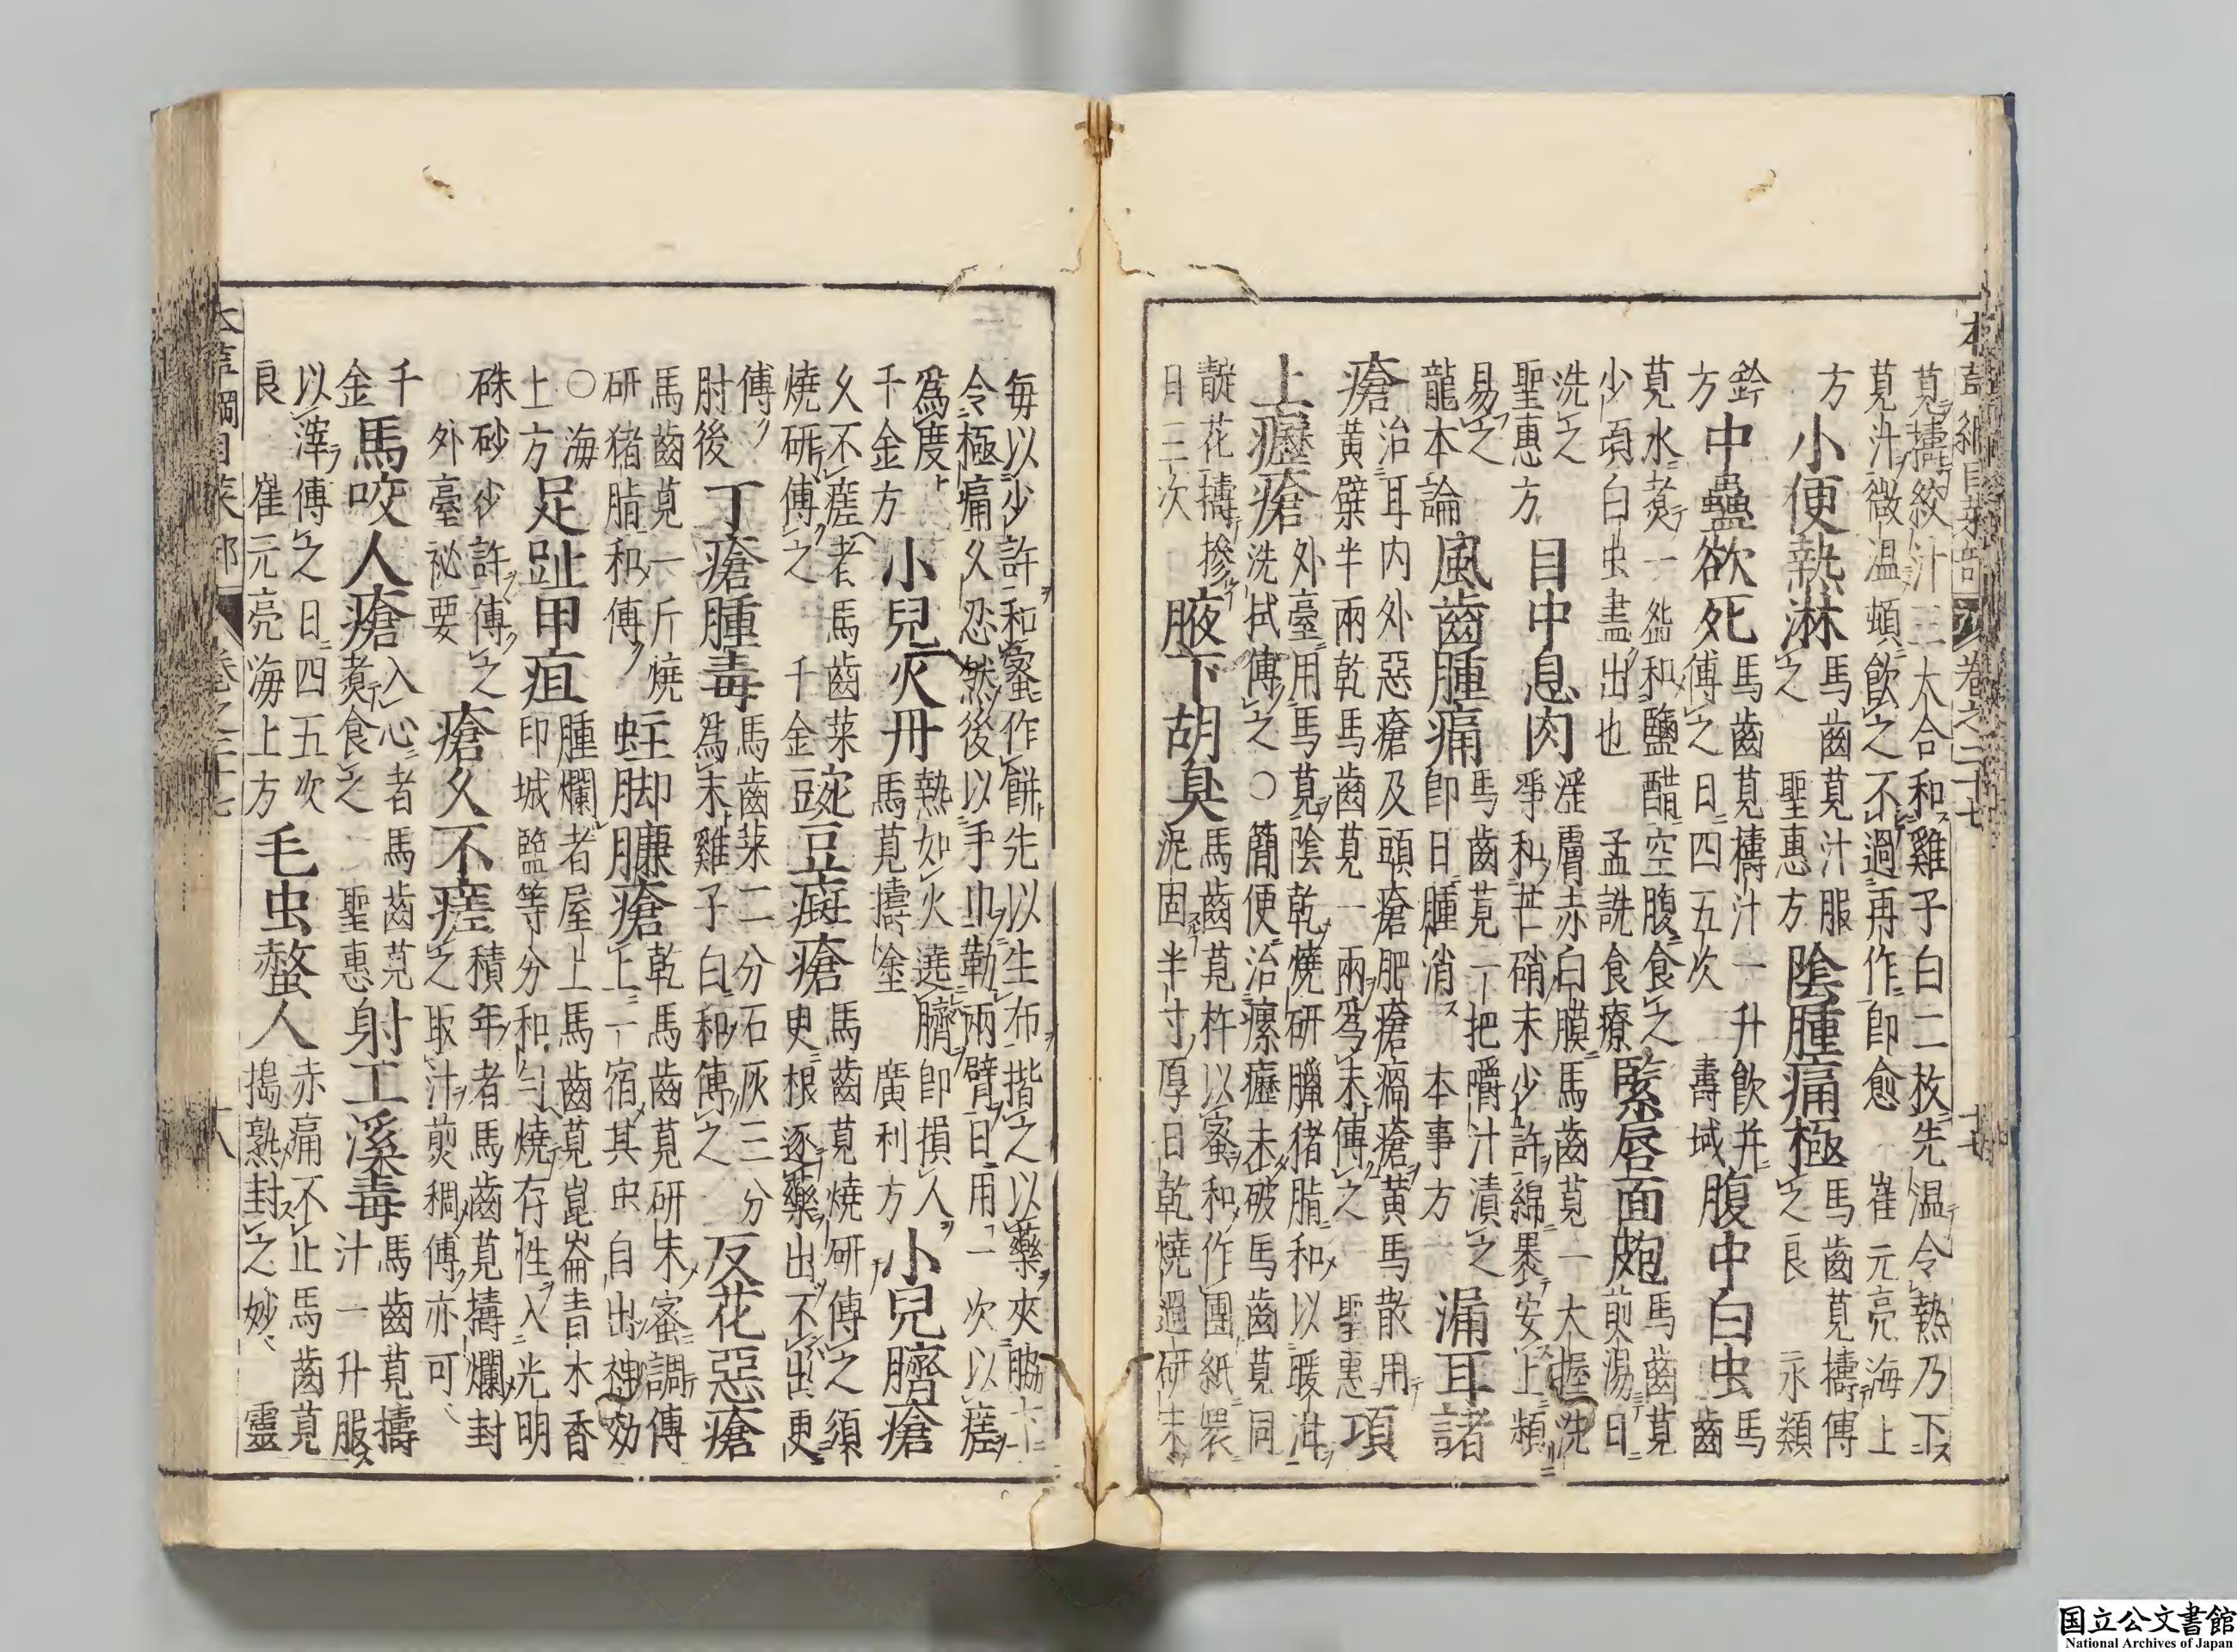 本草綱目菜部 卷之二十七 十七
莧擣絞汁三大合和雞子白二枚先温令熱乃下莧汁微温頓飲之不過再作即愈 崔元亮海上
方 小便熱淋 馬齒莧汁服之 聖惠方 陰腫痛極 馬齒莧擣傅之良 永類
鈐方 中蠱欲死 馬齒莧擣汁一升飲并傅之日四五次 壽域 腹中白虫 馬齒
莧水煮一盌和鹽醋空腹食之少頃白虫盡出也 孟詵食療 緊唇面皰 馬齒莧煎湯日
洗之聖惠方 目中息肉 淫膚赤白膜馬齒莧一大握洗淨和芒硝末少許綿裹安上頻
易之龍本論 風齒腫痛 馬齒莧一把嚼汁漬之即日腫消 本事方 漏耳諸
瘡 治耳内外惡瘡及頭瘡肥瘡瘑瘡黃馬散用黃蘗半兩乾馬齒莧一兩爲末傅之 聖惠 項
上癧瘡 外臺用馬莧陰乾燒研臘猪脂和以暖泔洗拭傅之○簡便治瘰癧未破馬齒莧同
靛花擣摻日三次 腋下胡臭 馬齒莧杵以蜜和作團紙裹泥固半寸厚日乾燒過研末
毎以少許和蜜作餅先以生布揩之以藥夾脇下令極痛久忍然後以手巾勒兩臂日用一次以瘥
爲度千金方 小兒火丹 熱如火遶臍即損人馬莧擣塗 廣利方 小兒臍瘡
久不瘥者馬齒菜燒研傅之 千金 豌豆癍瘡 馬齒莧燒研傅之須臾根逐藥出不出更
傅肘後 丁瘡腫毒 馬齒菜二分石灰三分爲末雞子白和傅之 反花惡瘡
馬齒莧一斤燒研猪脂和傅 蛀脚臁瘡 乾馬齒莧研末蜜調傅上一宿其虫自出神効
○海上方 足趾甲疽 腫爛者屋上馬齒莧崑崙青木香印城盬等分和勻燒存性入光明
硃砂少許傅之外臺祕要 瘡久不瘥 積年者馬齒莧擣爛封之取汁煎稠傅亦可
千金 馬咬人瘡 入心者馬齒莧煮食之 聖惠 射工溪毒 馬齒莧擣汁一升服
以滓傅之日四五次良 崔元亮海上方 毛虫螫人 赤痛不止馬齒莧搗熟封之妙 靈
本草綱目菜部 卷之二十七 十八
国立公文書館
National Archives of Japan